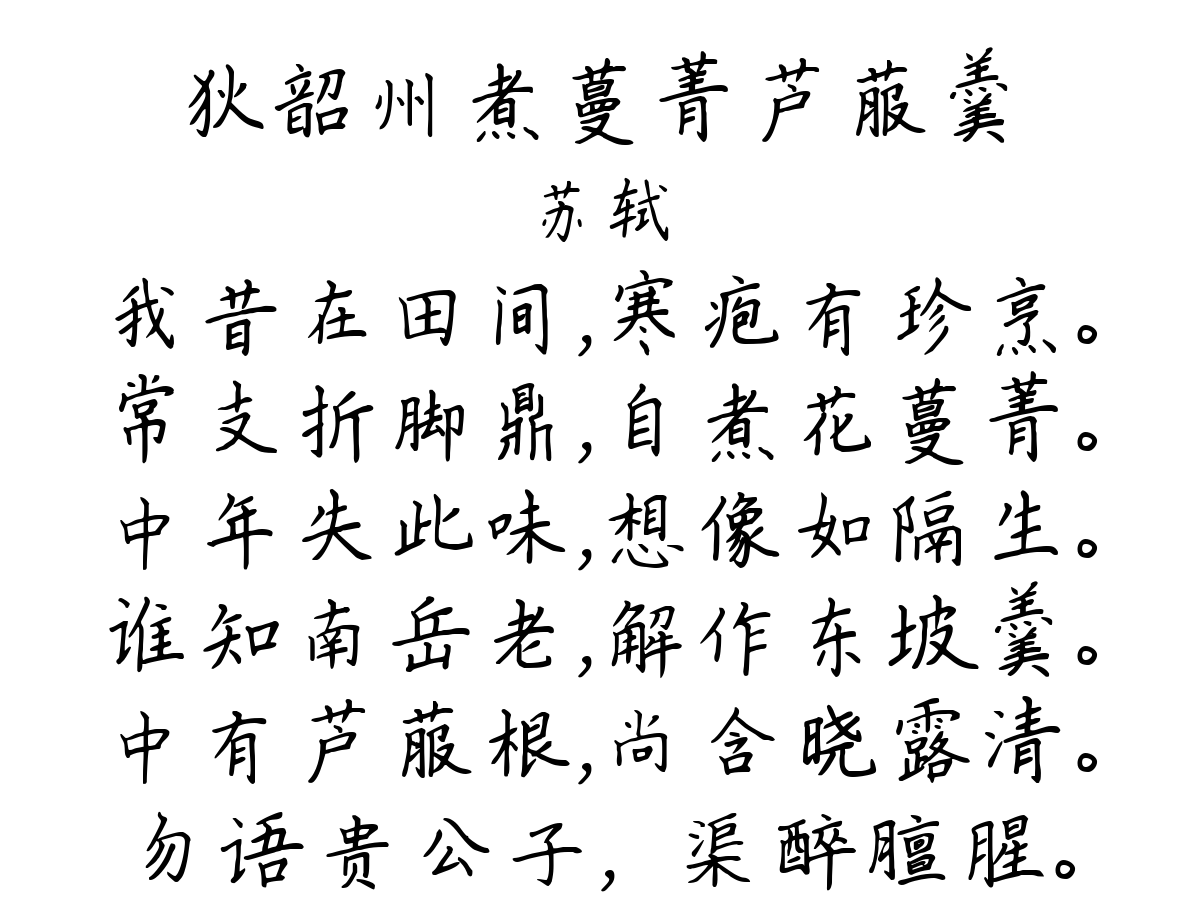 狄韶州煮蔓菁芦菔羹
苏轼
我昔在田间,寒疱有珍烹。
常支折脚鼎,自煮花蔓菁。
中年失此味,想像如隔生。
谁知南岳老,解作东坡羹。
中有芦菔根,尚含晓露清。
勿语贵公子，渠醉膻腥。